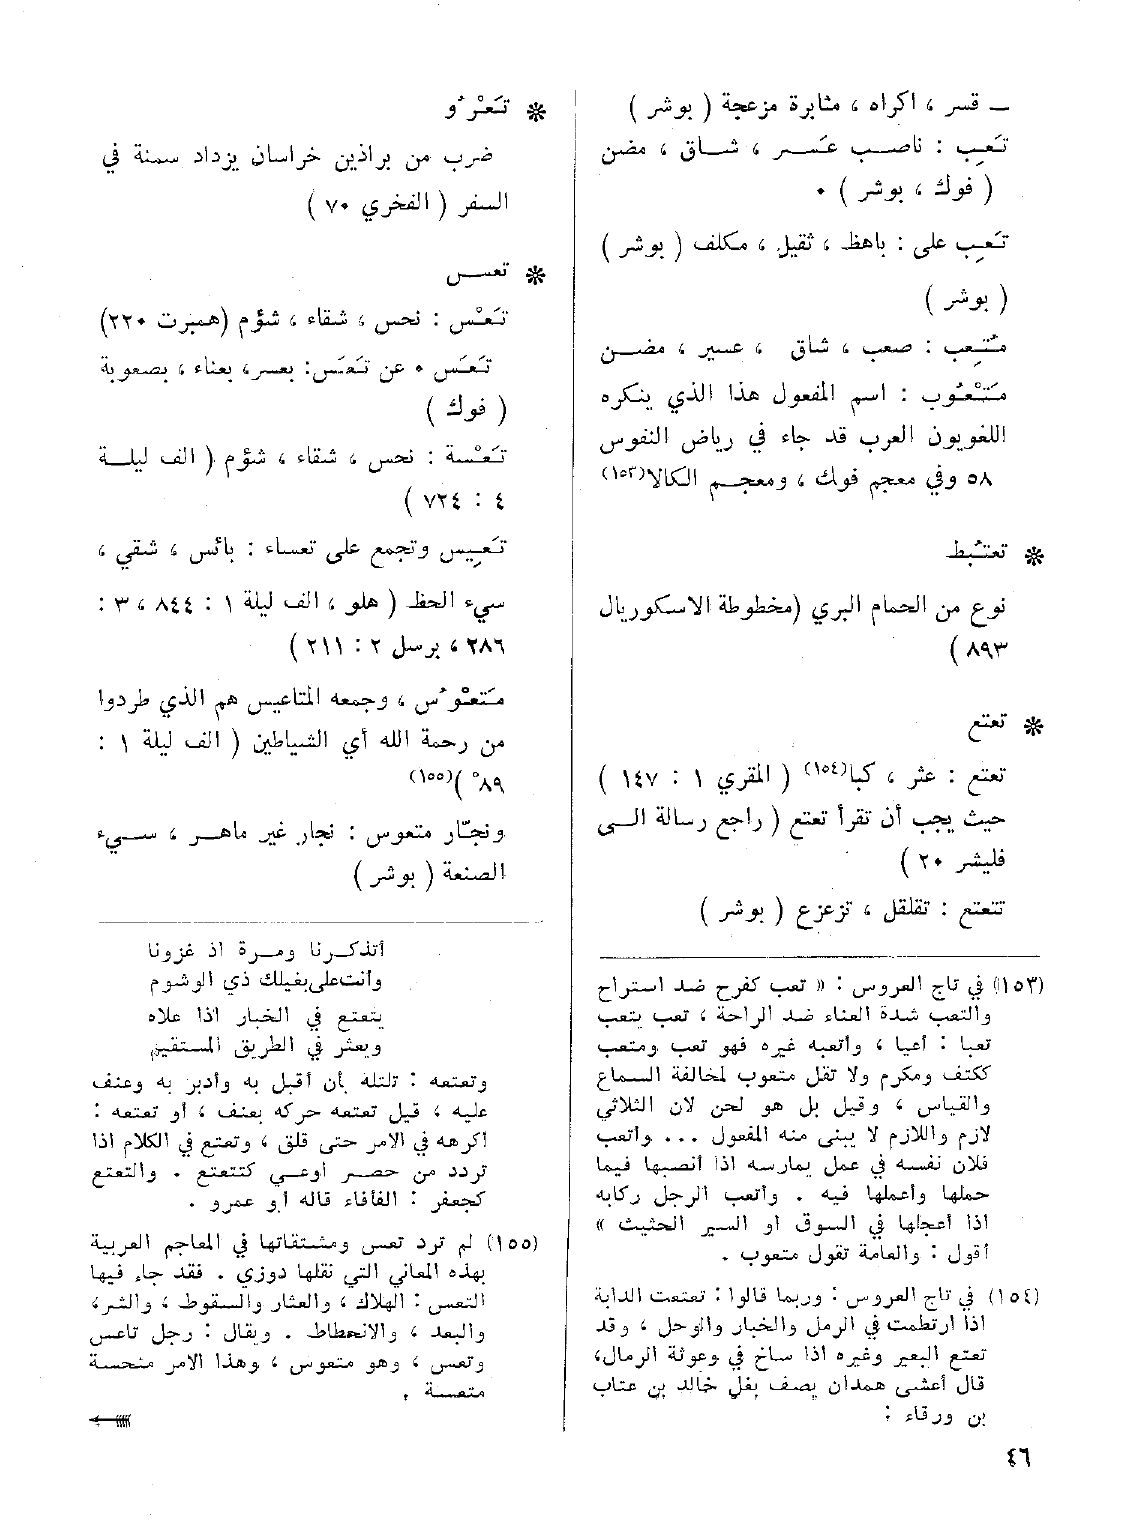 — قسر ، اكراه ، مثابرة مزعجة ( بوشر )
تَعِب : ناصب عَسر ، شاق ، مضن
( فوك ، بوشر ) ٠
تَعِب على : باهظ ، ثقيل ، مكلف ( بوشر )
( بوشر )
مُتْعِب : صعب ، شاق ، عسير ، مضن
مَتْعُوب : اسم المفعول هذا الذي ينكره
اللغويون العرب قد جاء في رياض النفوس
٥٨ وفي معجم فوك ، ومعجم الكالا(١٥٣)
❋ تعثبط
نوع من الحمام البري (مخطوطة الاسكوريال
٨٩٣ )
❋ تعتع
تعتع : عثر ، كبا(١٥٤) ( المقري ١ : ١٤٧ )
حيث يجب أن تقرأ تعتع ( راجع رسالة الى
فليشر ٢٠ )
تتعتع : تقلقل ، تزعزع ( بوشر )
(١٥٣) في تاج العروس : « تعب كفرح ضد استراح
والتعب شدة العناء ضد الراحة ، تعب يتعب
تعبا : أعيا ، وأتعبه غيره فهو تعب ومتعب
ككتف ومكرم ولا تقل متعوب لمخالفة السماع
والقياس ، وقيل بل هو لحن لان الثلاثي
لازم واللازم لا يبنى منه المفعول ... وأتعب
فلان نفسه في عمل يمارسه اذا أنصبها فيما
حملها وأعملها فيه . وأتعب الرجل ركابه
اذا أعجلها في السوق أو السير الحثيث »
أقول : والعامة تقول متعوب .
(١٥٤) في تاج العروس : وربما قالوا : تعتعت الدابة
اذا ارتطمت في الرمل والخبار والوحل ، وقد
تعتع البعير وغيره اذا ساخ في وعوثة الرمال،
قال أعشى همدان يصف بغل خالد بن عتاب
بن ورقاء :
❋ تَعْرُو
ضرب من براذين خراسان يزداد سمنة في
السفر ( الفخري ٧٠ )
❋ تعس
تَعْس : نحس ، شقاء ، شؤم (همبرت ٢٢٠)
تَعَس ٠ عن تَعَس: بعسر، بعناء ، بصعوبة
( فوك )
تَعْسة : نحس ، شقاء ، شؤم ( الف ليلة
٤ : ٧٢٤ )
تَعِيس وتجمع على تعساء : بائس ، شقي ،
سيء الحظ ( هلو ، الف ليلة ١ : ٨٤٤ ، ٣ :
٢٨٦ ، برسل ٢ : ٢١١ )
مَتْعُوس ، وجمعه المتاعيس هم الذي طردوا
من رحمة الله أي الشياطين ( الف ليلة ١ :
٨٩ )(١٥٥)
ونجّار متعوس : نجار غير ماهر ، سيء
الصنعة ( بوشر )
أتذكرنا ومرة اذ غزونا
وأنت على بغيلك ذي الوشوم
يتعتع في الخبار اذا علاه
ويعثر في الطريق المستقيم
وتعتعه : تلتله بأن أقبل به وأدبر به وعنف
عليه ، قيل تعتعه حركه بعنف ، أو تعتعه :
أكرهه في الامر حتى قلق ، وتعتع في الكلام اذا
تردد من حصر أو عي كتتعتع . والتعتع
كجعفر : الفأفاء قاله أبو عمرو .
(١٥٥) لم ترد تعس ومشتقاتها في المعاجم العربية
بهذه المعاني التي نقلها دوزي . فقد جاء فيها
التعس : الهلاك ، والعثار والسقوط ، والشر،
والبعد ، والانحطاط . ويقال : رجل تاعس
وتعس ، وهو متعوس ، وهذا الامر منحسة
متعسة .
٤٦